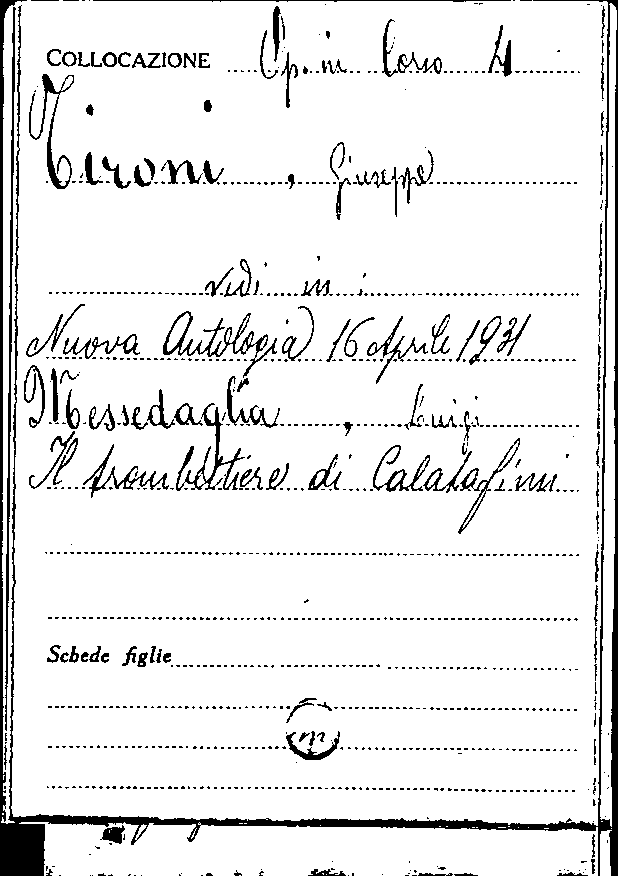 COLLOCAZIONE Op. in Corso 4
Tironi, Giuseppe
vedi in:
Nuova Antologia 16 Aprile 1931
Messedaglia, Luigi
Il trombettiere di Calatafimi
Schede figlie
m